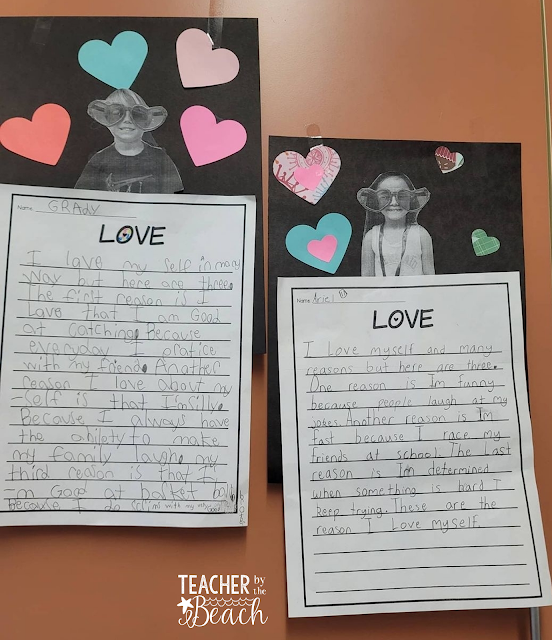 Name GRADY
LOVE
I love my self in many
way but here are three.
The first reason is I
Love that I am Good
at catching. Because
everyday I pratice
with my friend. Another
reason I love about my
self is that I'm silly.
Because I always have
the ability to make
my family laugh. my
third reason is that I
m Good at basket ball
because I do with my
Name Ariel
LOVE
I Love myself and many
reasons but here are three.
One reason is Im funny
because people laugh at my
jokes. Another reason is Im
fast because I race my
friends at school. The last
reason is Im determined
when something is hard I
keep trying. These are the
reason I Love myself.
TEACHER by the Beach